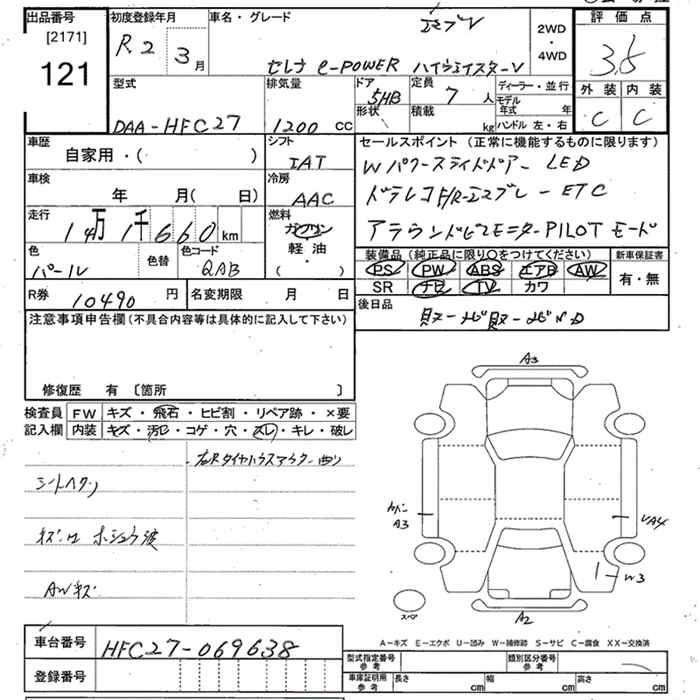 出品番号 初度登録年月 車名・グレード 2WD・4WD 評価点
[2171] R2 3月 3.5
121 セレナ e-POWER ハイウェイスターV
型式 排気量 ドア形状 定員 ディーラー・並行 外装 内装
DAA-HFC27 1200cc 5HB 7人 モデル年式 年 C C
積載 kg ハンドル 左・右
車歴 シフト セールスポイント(正常に機能するものに限ります)
自家用・( ) IAT Wパワースライドドアー LED
車検 冷房 ドラレコF/R エマブレー ETC
年 月( 日) AAC
走行 燃料 アラウンドビューモニター PILOT モード
14万1千660km ガソリン
軽油
( ・ )
色 色替 色コード 装備品(純正品に限り○をつけてください) 新車保証書
パール QAB PS PW ABS エアB AW 有・無
SR ナビ TV カワ
R券 10490円 名変期限 月 日 後日品
注意事項申告欄(不具合内容等は具体的に記入して下さい)
修復歴 有 〔箇所 〕
検査員 FW キズ・飛石・ヒビ割・リペア跡・×要
記入欄 内装 キズ・汚レ・コゲ・穴・スレ・キレ・破レ
シートヘタリ
AWキズ
A3
A3
W3
A2
スペア
A-キズ E-エクボ U-凹み W-補修跡 S-サビ C-腐食 XX-交換済
車台番号 HFC27-069638
登録番号
型式指定番号 参考 類別区分番号 参考
車庫証明用 参考 長さ cm 幅 cm 高さ cm